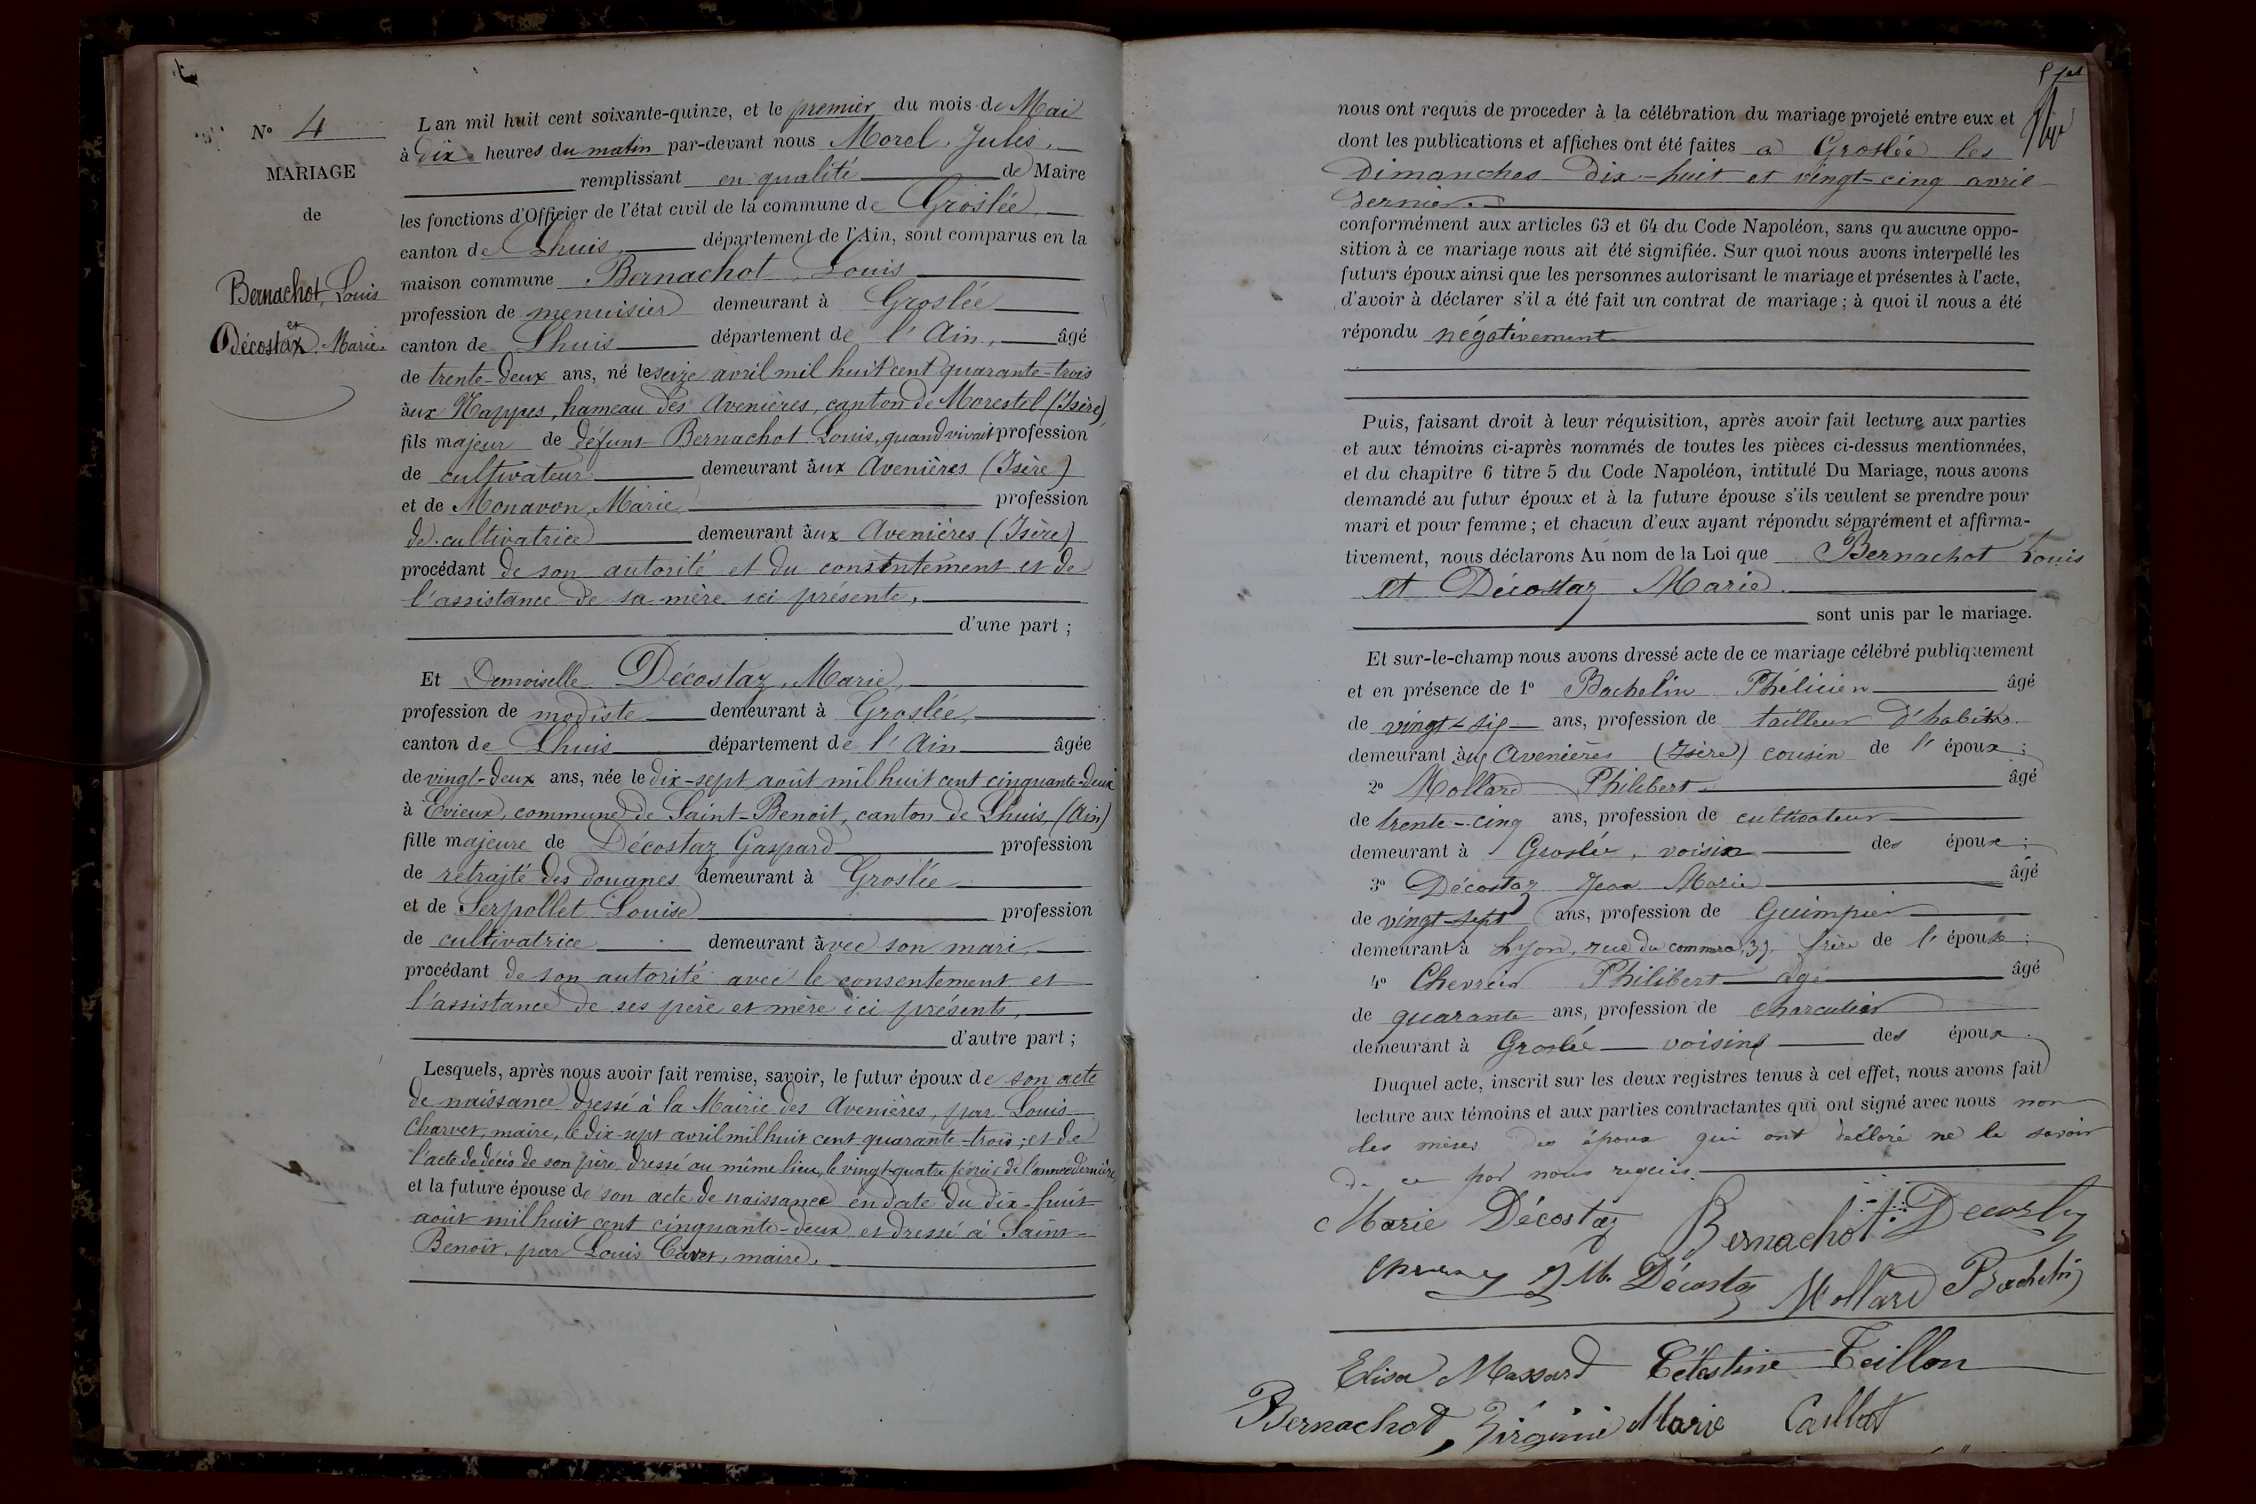 N° 4
MARIAGE
de
Bernachot, Louis
et
Décostaz, Marie.
L'an mil huit cent soixante-quinze, et le premier du mois de Mai
à dix heures du matin par-devant nous Morel, Jules,
remplissant en qualité de Maire
les fonctions d'Officier de l'état civil de la commune de Groslée,
canton de Lhuis, département de l'Ain, sont comparus en la
maison commune Bernachot, Louis
profession de menuisier demeurant à Groslée
canton de Lhuis département de l'Ain, âgé
de trente-deux ans, né le seize avril mil huit cent quarante-trois
aux Nappes, hameau des Avenières, canton de Morestel (Isère)
fils majeur de défunt Bernachot Louis, quand vivait profession
de cultivateur demeurant aux Avenières (Isère)
et de Monavon, Marie profession
de cultivatrice demeurant aux Avenières (Isère)
procédant de son autorité et du consentement et de
l'assistance de sa mère ici présente,
d'une part ;
Et Demoiselle Décostaz, Marie,
profession de modiste demeurant à Groslée,
canton de Lhuis département de l'Ain âgée
de vingt-deux ans, née le dix-sept août mil huit cent cinquante-deux
à Evieux, commune de Saint-Benoit, canton de Lhuis (Ain)
fille majeure de Décostaz Gaspard profession
de retraité des douanes demeurant à Groslée
et de Serpollet Louise profession
de cultivatrice demeurant avec son mari,
procédant de son autorité avec le consentement et
l'assistance de ses père et mère ici présents,
d'autre part ;
Lesquels, après nous avoir fait remise, savoir, le futur époux de son acte
de naissance dressé à la Mairie des Avenières, par Louis
Charvet, maire, le dix-sept avril mil huit cent quarante-trois; et de
l'acte de décès de son père dressé au même lieu, le vingt-quatre février de l'année dernière,
et la future épouse de son acte de naissance en date du dix-huit
août mil huit cent cinquante-deux et dressé à Saint-
Benoit, par Louis Cavet, maire.
nous ont requis de proceder à la célébration du mariage projeté entre eux et
dont les publications et affiches ont été faites a Groslée les
Dimanches Dix-huit et vingt-cinq avril
dernier.
conformément aux articles 63 et 64 du Code Napoléon, sans qu aucune oppo-
sition à ce mariage nous ait été signifiée. Sur quoi nous avons interpellé les
futurs époux ainsi que les personnes autorisant le mariage et présentes à l'acte,
d'avoir à déclarer s'il a été fait un contrat de mariage ; à quoi il nous a été
répondu négativement
Puis, faisant droit à leur réquisition, après avoir fait lecture aux parties
et aux témoins ci-après nommés de toutes les pièces ci-dessus mentionnées,
et du chapitre 6 titre 5 du Code Napoléon, intitulé Du Mariage, nous avons
demandé au futur époux et à la future épouse s'ils veulent se prendre pour
mari et pour femme ; et chacun d'eux ayant répondu séparément et affirma-
tivement, nous déclarons Au nom de la Loi que Bernachot Louis
et Décostaz Marie.
sont unis par le mariage.
Et sur-le-champ nous avons dressé acte de ce mariage célébré publiquement
et en présence de 1° Bachelin Phélicien âgé
de vingt-six ans, profession de tailleur d'habits
demeurant aux Avenières (Isère) cousin de l'époux ;
2° Mollard Philibert âgé
de trente-cinq ans, profession de cultivateur
demeurant à Groslée, voisin des époux ;
3° Décostaz Jean Marie âgé
de vingt-sept ans, profession de Guimpier
demeurant à Lyon, rue du commerce, 37, frère de l'épouse ;
4° Chevrier Philibert agé âgé
de quarante ans, profession de charcutier
demeurant à Groslée voisins des époux.
Duquel acte, inscrit sur les deux registres tenus à cet effet, nous avons fait
lecture aux témoins et aux parties contractantes qui ont signé avec nous non
les mères des époux qui ont declaré ne le savoir
de ce par nous requis.
Marie Décostaz Bernachot Decostaz
J M Décostaz Mollard Bachelin
Elisa Massard Célestine Teillon
Bernachot, Virginie Marie Caillat